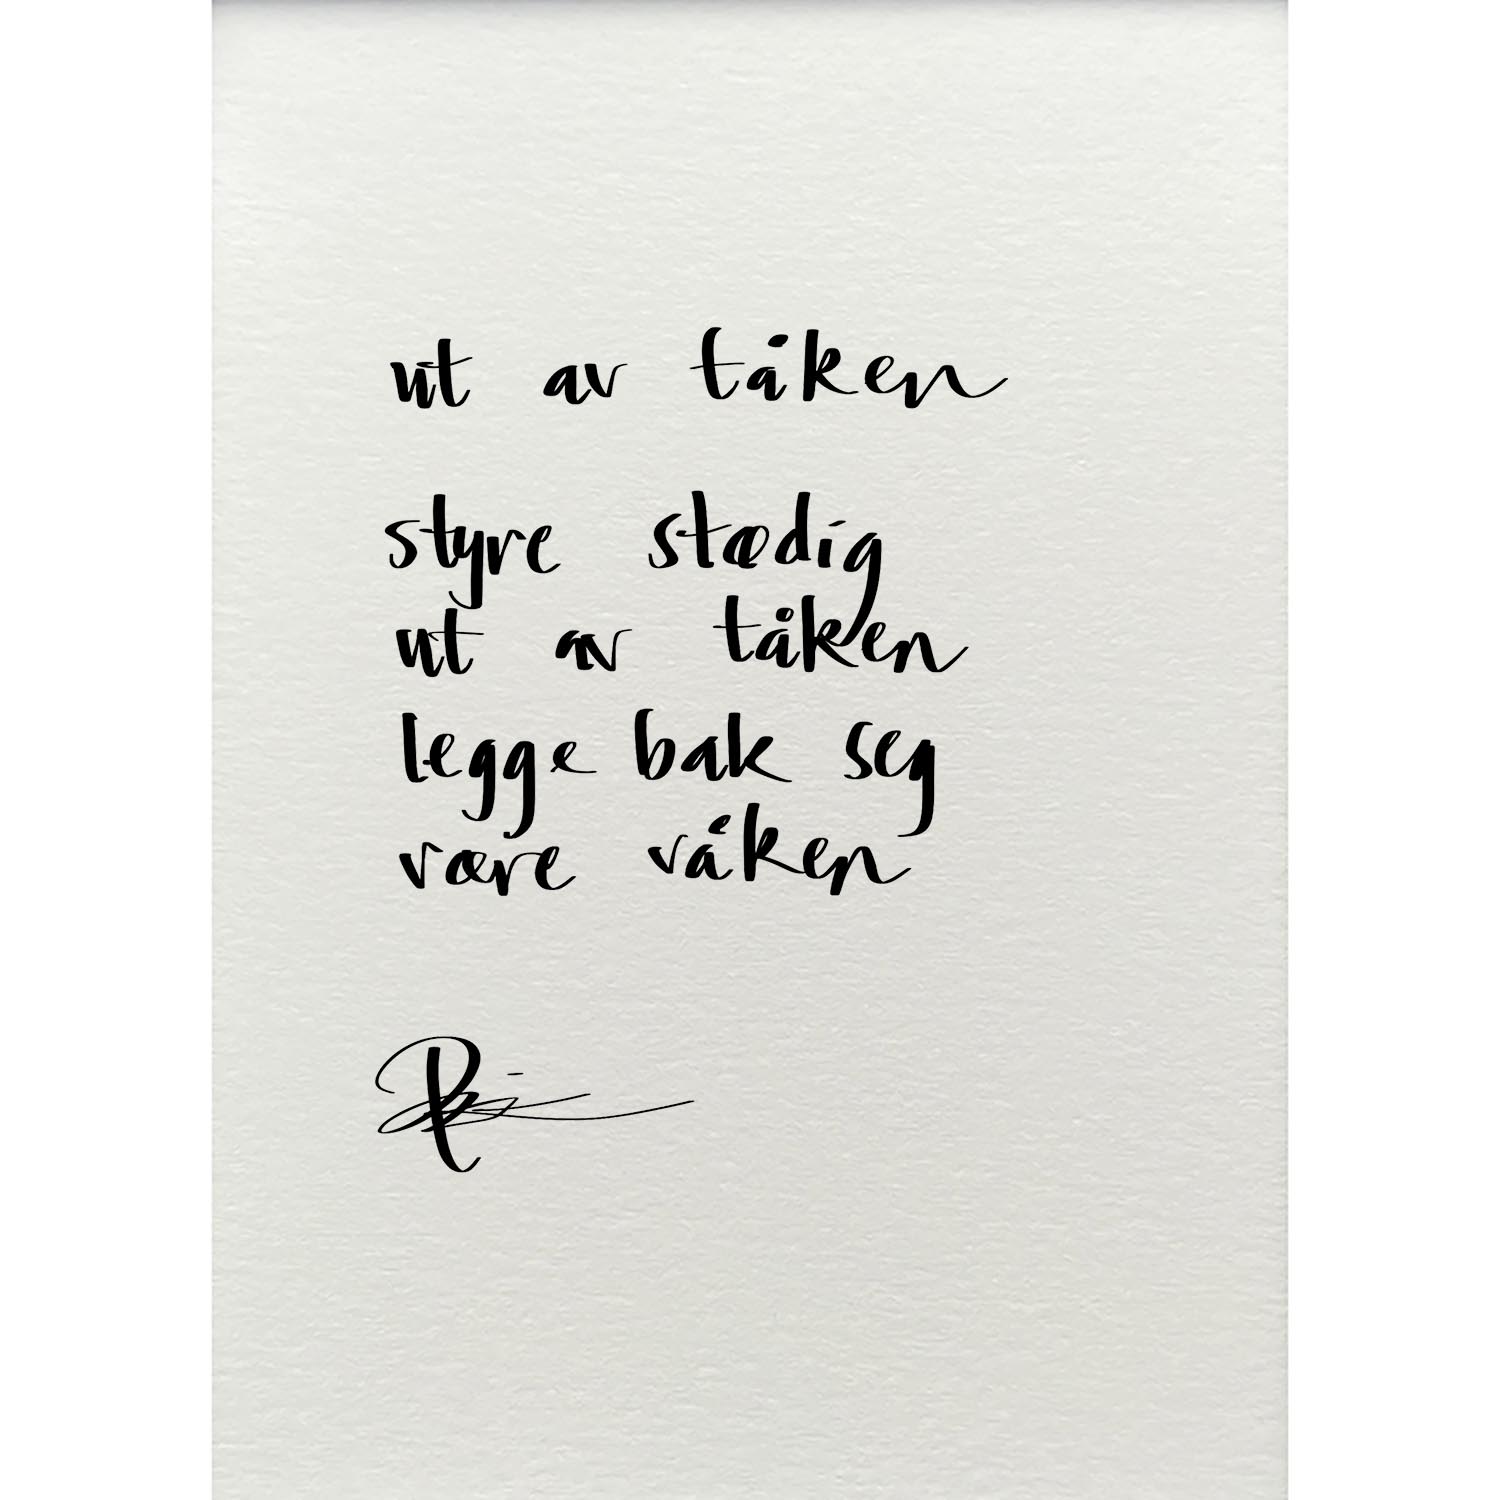 ut av tåken
styre stødig
ut av tåken
legge bak seg
være våken